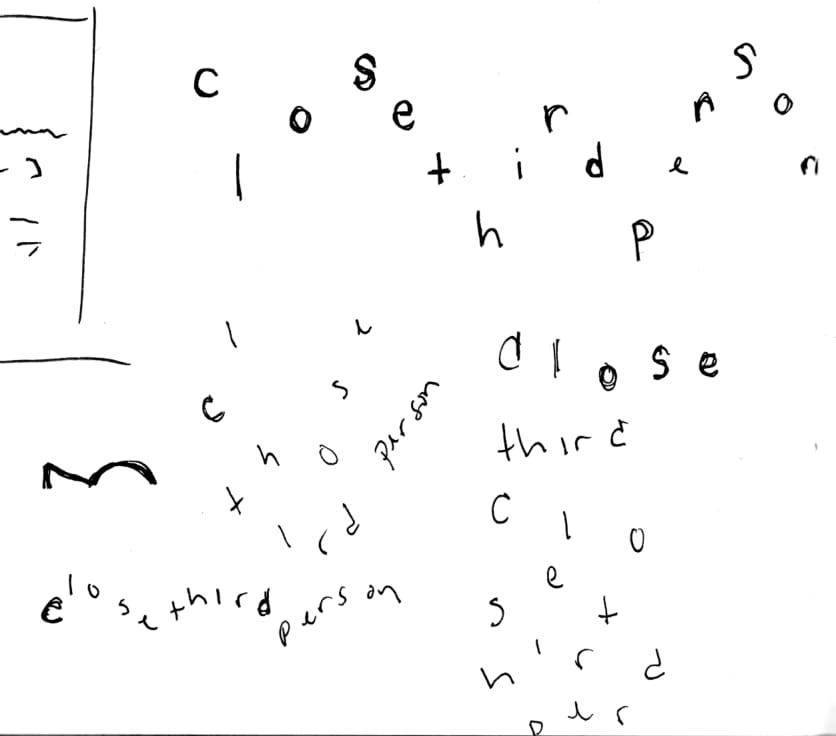 close third person
close
third person
dlose
third
close thirdperson
close t
hird
per